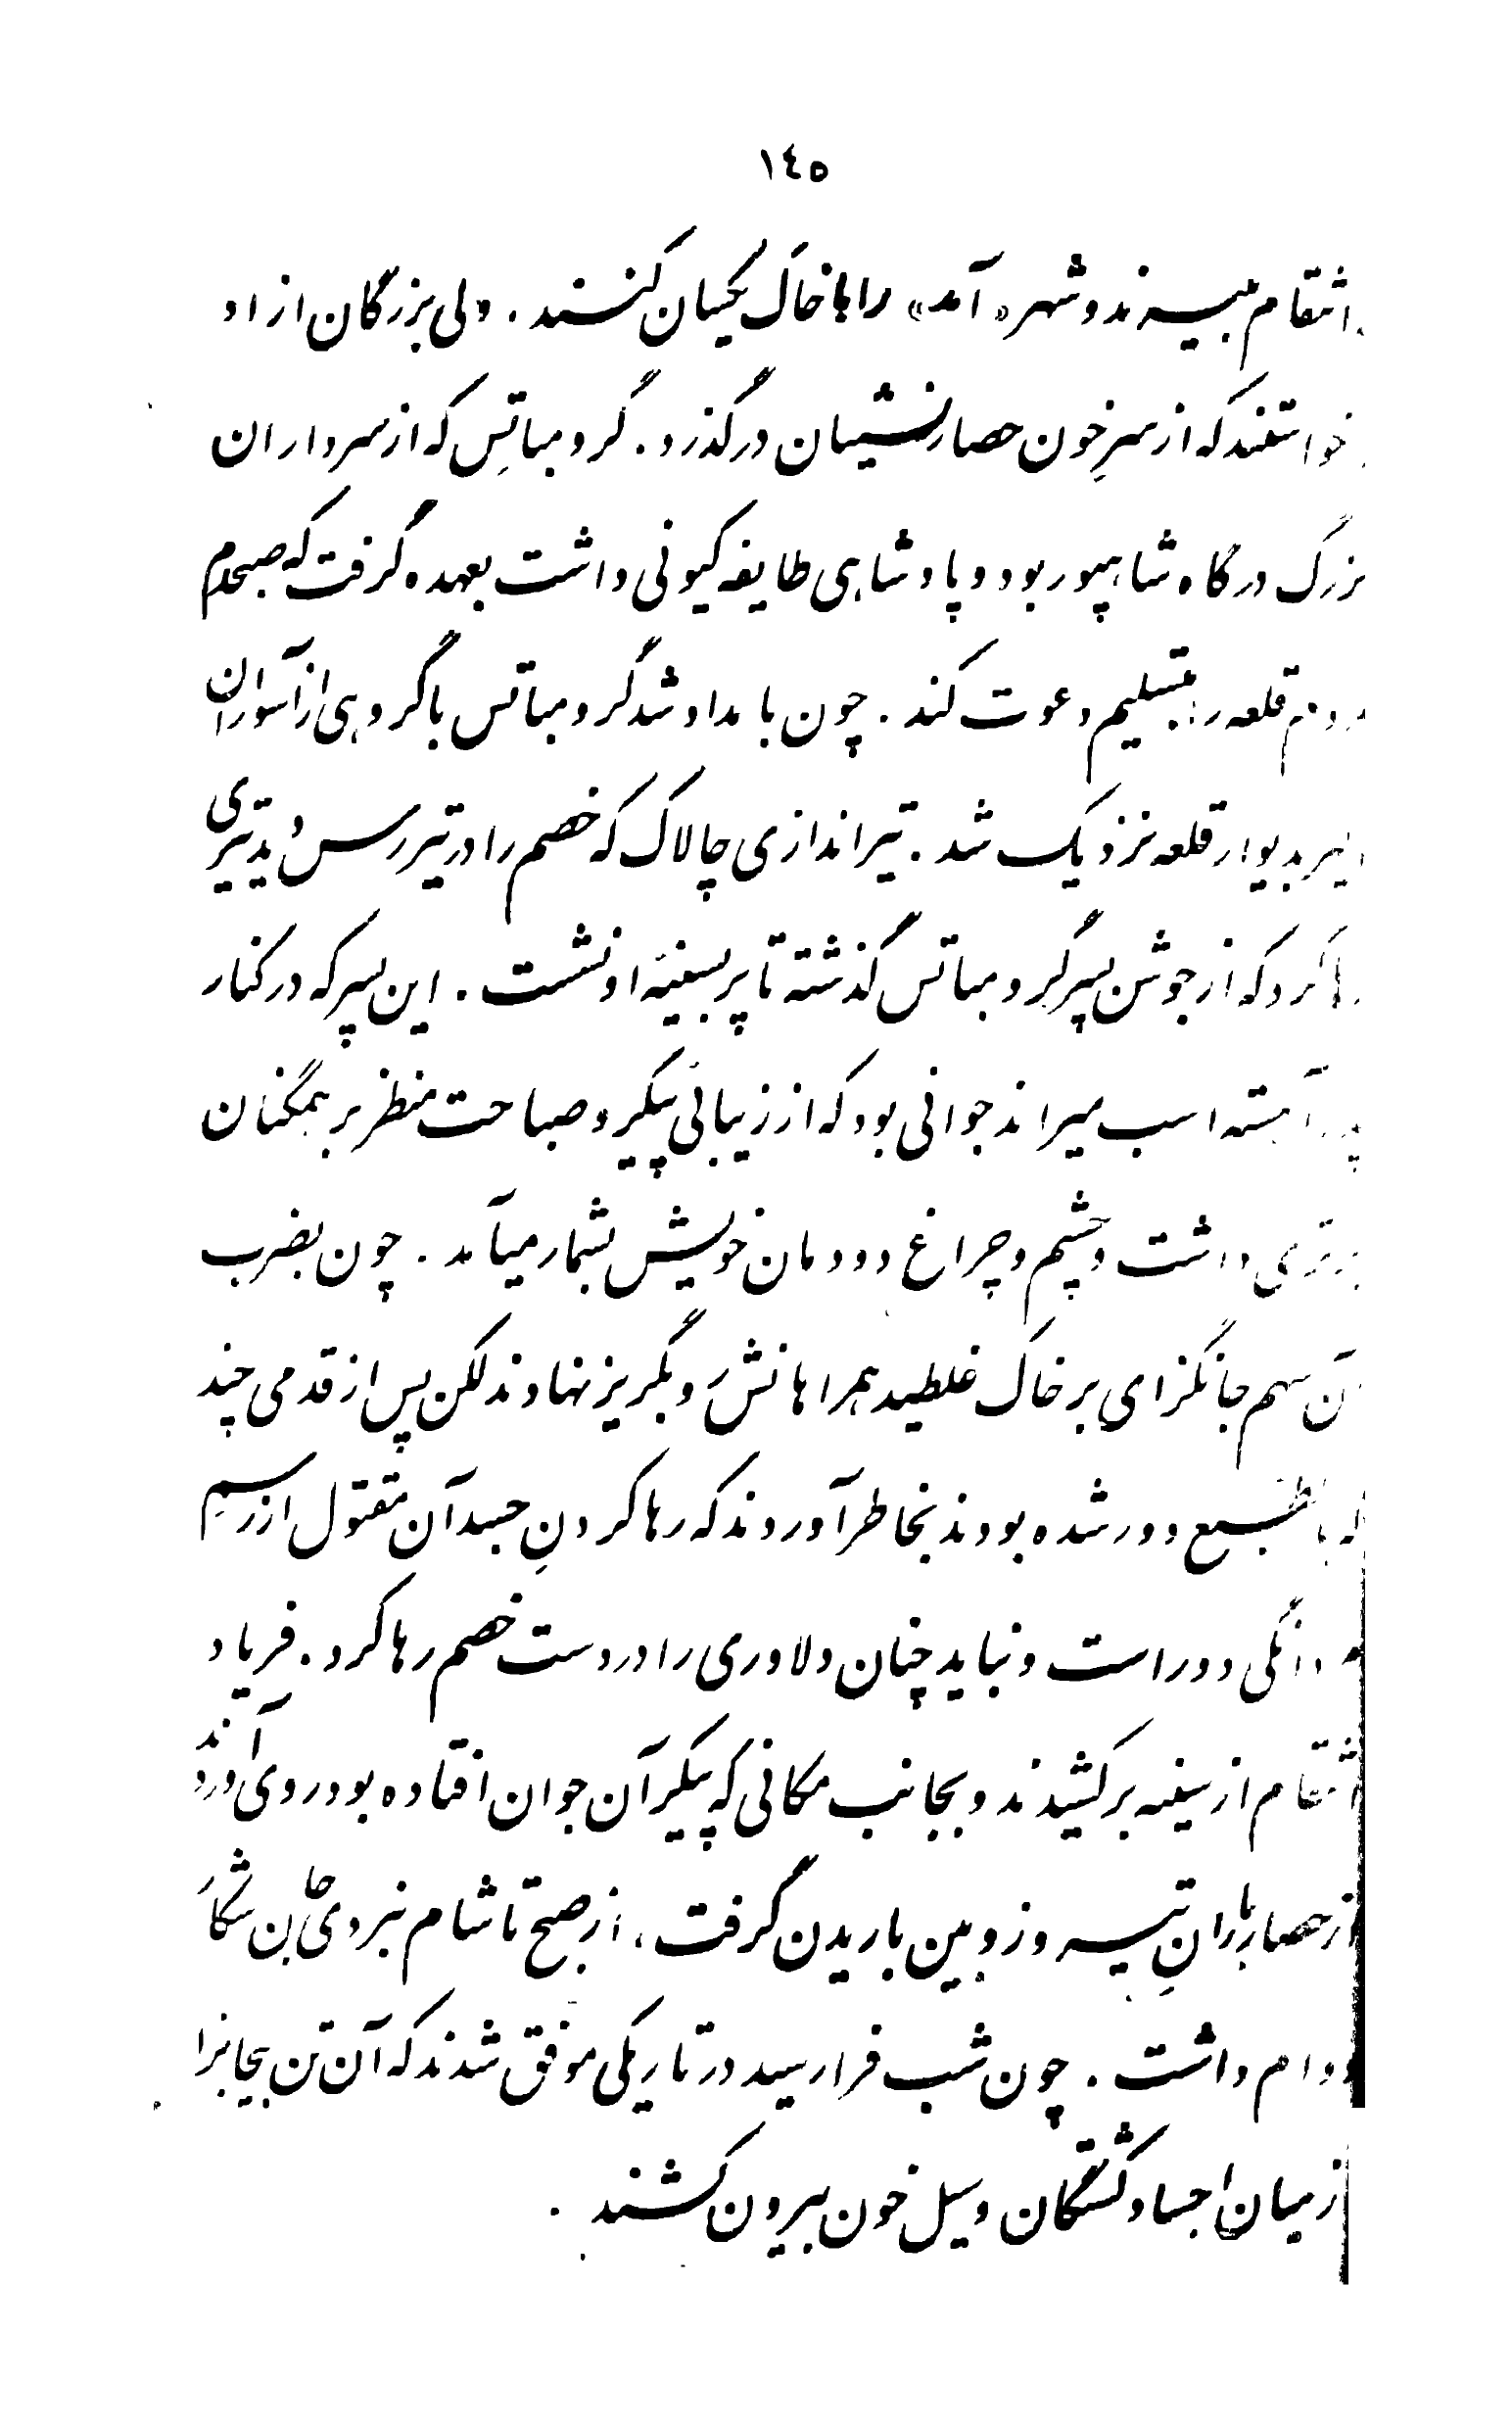 ١٤٥
انتقام ببیند و شهر «آمد» را با خاک یکسان کنند. ولی بزرگان از او
خواستند که از سرِ خون حصارنشینان درگذرد. گرومباتِس که از سرداران
بزرگ درگاه شاهپور بود و پادشاهی طایفه کیونی داشت بعهده گرفت که صبحدم
مردم قلعه را بتسلیم دعوت کند. چون بامداد شد گرومباتس با گروهی از اسواران
دلیر بدیوار قلعه نزدیک شد. تیراندازی چالاک که خصم را در تیررس دید تیری
رها کرد که از جوشن پسر گرومباتس گذشته تا پر بسینهٔ او نشست. این پسر که در کنار
پدر آهسته اسب میراند جوانی بود که از زیبائی پیکر و صباحت منظر بر همگنان
برتری داشت و چشم و چراغ دودمان خویش بشمار میآمد. چون بضرب
آن سهم جانگزای بر خاک غلطید همراهانش رو بگریز نهادند لکن پس از قدمی چند
که بالطبع دور شده بودند بخاطر آوردند که رها کردنِ جسد آن مقتول از رسم
مردانگی دور است و نباید چنان دلاوری را در دست خصم رها کرد. فریاد
انتقام از سینه برکشیدند و بجانب مکانی که پیکر آن جوان افتاده بود روی آوردند
از حصار بارانِ تیر و زوبین باریدن گرفت، از صبح تا شام نبردی جان شکار
دوام داشت. چون شب فرا رسید در تاریکی موفق شدند که آن تن بیجانرا
از میان اجساد کشتگان و سیل خون بیرون کشند.